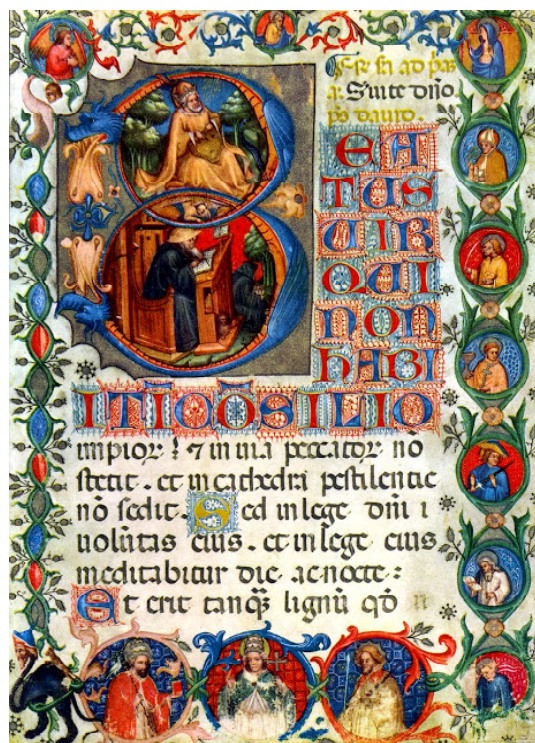 ad
Suite dño
ps dauid.
B EA
TUS
UIR
QUI
NON
HABI
IT I CŌSILIO
impior ⁊ in uia peccator nō
stetit . et in cathedra pestilencie
nō sedit . Sed in lege dñi
uolūtas eius . et in lege eius
meditabitur die ac nocte :
Et erit tanqȝ lignū qđ